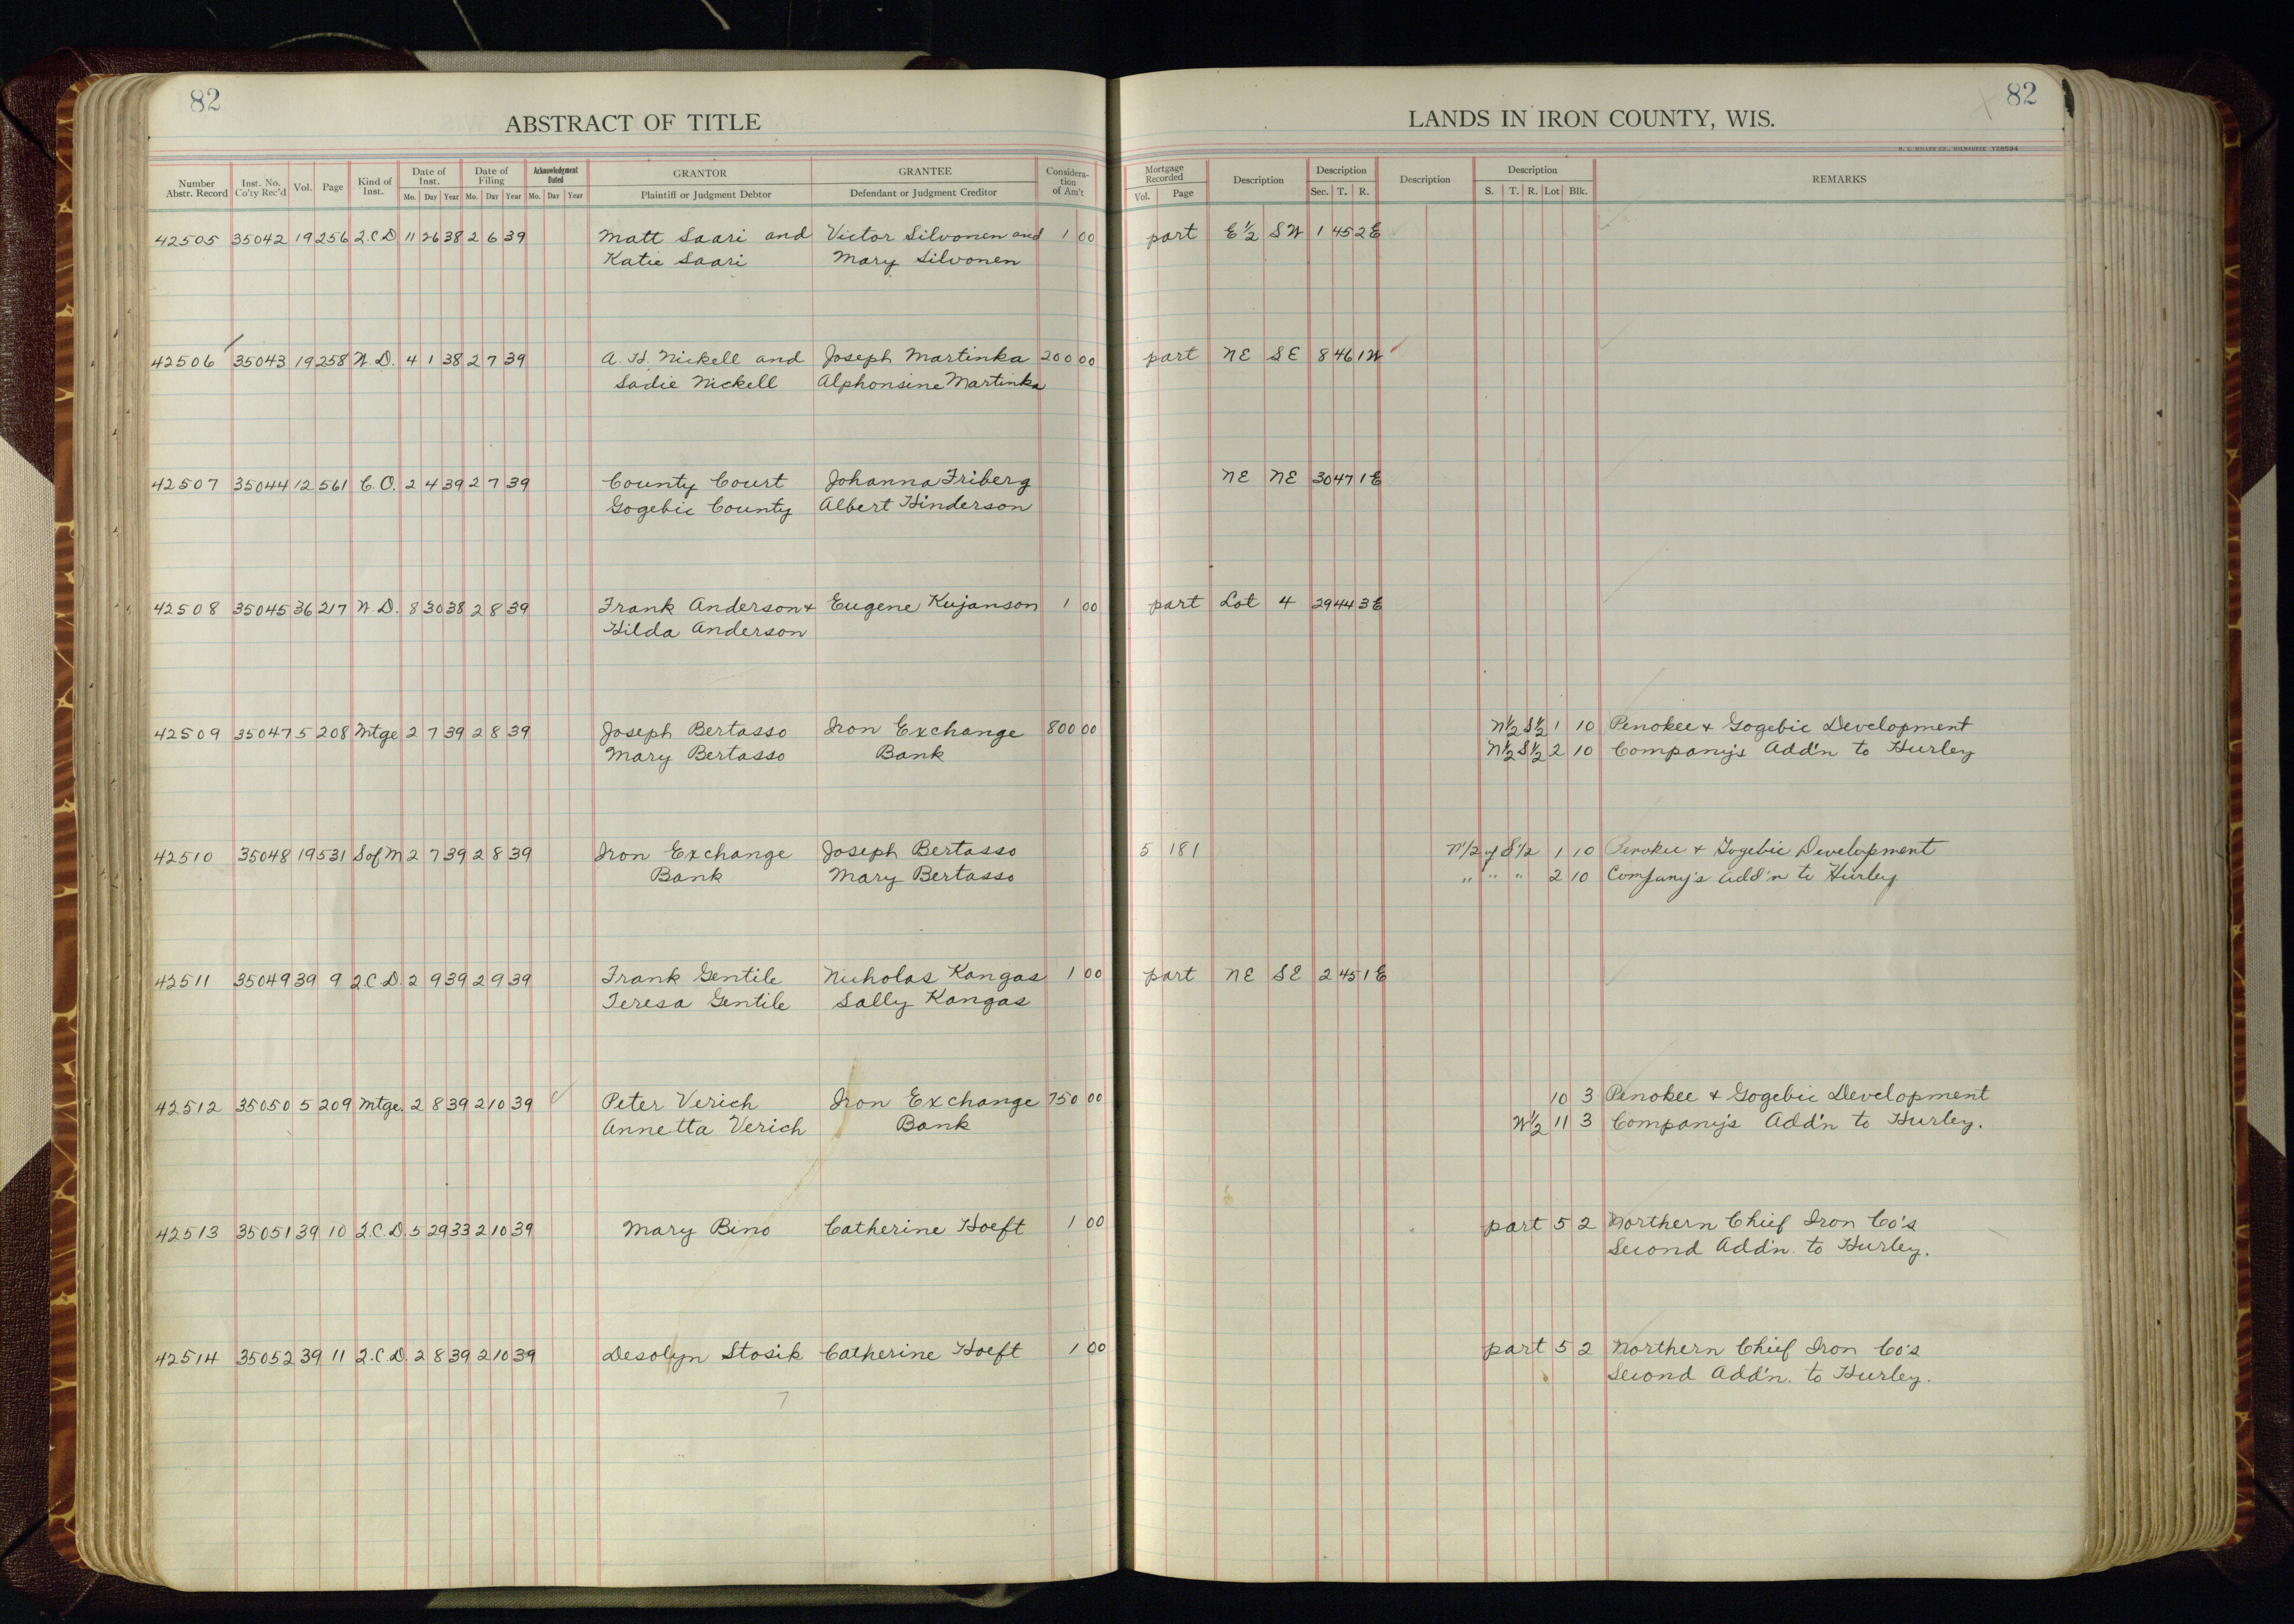 82
ABSTRACT OF TITLE
Number Abstr. Record | Inst. No. Co'ty Rec'd | Vol. | Page | Kind of Inst. | Date of Inst. Mo. Day Year | Date of Filing Mo. Day Year | Acknowledgment Dated Mo. Day Year | GRANTOR Plaintiff or Judgment Debtor | GRANTEE Defendant or Judgment Creditor | Considera-tion of Am't
82
LANDS IN IRON COUNTY, WIS.
H. C. MILLER CO., MILWAUKEE Y28584
Mortgage Recorded Vol. Page | Description | Description Sec. T. R. | Description | Description S. T. R. Lot Blk. | REMARKS
42505 35042 19 256 2.C.D 11 26 38 2 6 39 Matt Saari and Victor Silvonen and 1 00 part E½ SW 1 45 2E
Katie Saari Mary Silvonen
42506 35043 19 258 W.D. 4 1 38 2 7 39 A. H. Nickell and Joseph Martinka 200 00 part NE SE 8 46 1W
Sadie Nickell Alphonsine Martinka
42507 35044 12 561 C.O. 2 4 39 2 7 39 County Court Johanna Friberg NE NE 30 47 1E
Gogebic County Albert Hinderson
42508 35045 36 217 W.D. 8 30 38 2 8 39 Frank Anderson + Eugene Kujanson 1 00 part Lot 4 29 44 3E
Hilda Anderson
42509 35047 5 208 Mtge 2 7 39 2 8 39 Joseph Bertasso Iron Exchange 800 00 N½ S½ 1 10 Penokee + Gogebic Development
Mary Bertasso Bank N½ S½ 2 10 Company's Add'n to Hurley
42510 35048 19 531 S of M 2 7 39 2 8 39 Iron Exchange Joseph Bertasso 5 181 N1/2 of S1/2 1 10 Penokee + Gogebic Development
Bank Mary Bertasso " " " 2 10 Company's Add'n to Hurley
42511 35049 39 9 2.C.D. 2 9 39 2 9 39 Frank Gentile Nicholas Kangas 1 00 part NE SE 2 45 1E
Teresa Gentile Sally Kangas
42512 35050 5 209 Mtge. 2 8 39 2 10 39 Peter Verich Iron Exchange 750 00 10 3 Penokee + Gogebic Development
Annetta Verich Bank W½ 11 3 Company's Add'n to Hurley.
42513 35051 39 10 2.C.D. 5 29 33 2 10 39 Mary Bino Catherine Hoeft 1 00 part 5 2 Northern Chief Iron Co's
Second Add'n. to Hurley.
42514 35052 39 11 2.C.D. 2 8 39 2 10 39 Desolyn Stosik Catherine Hoeft 1 00 part 5 2 Northern Chief Iron Co's
Second Add'n. to Hurley.